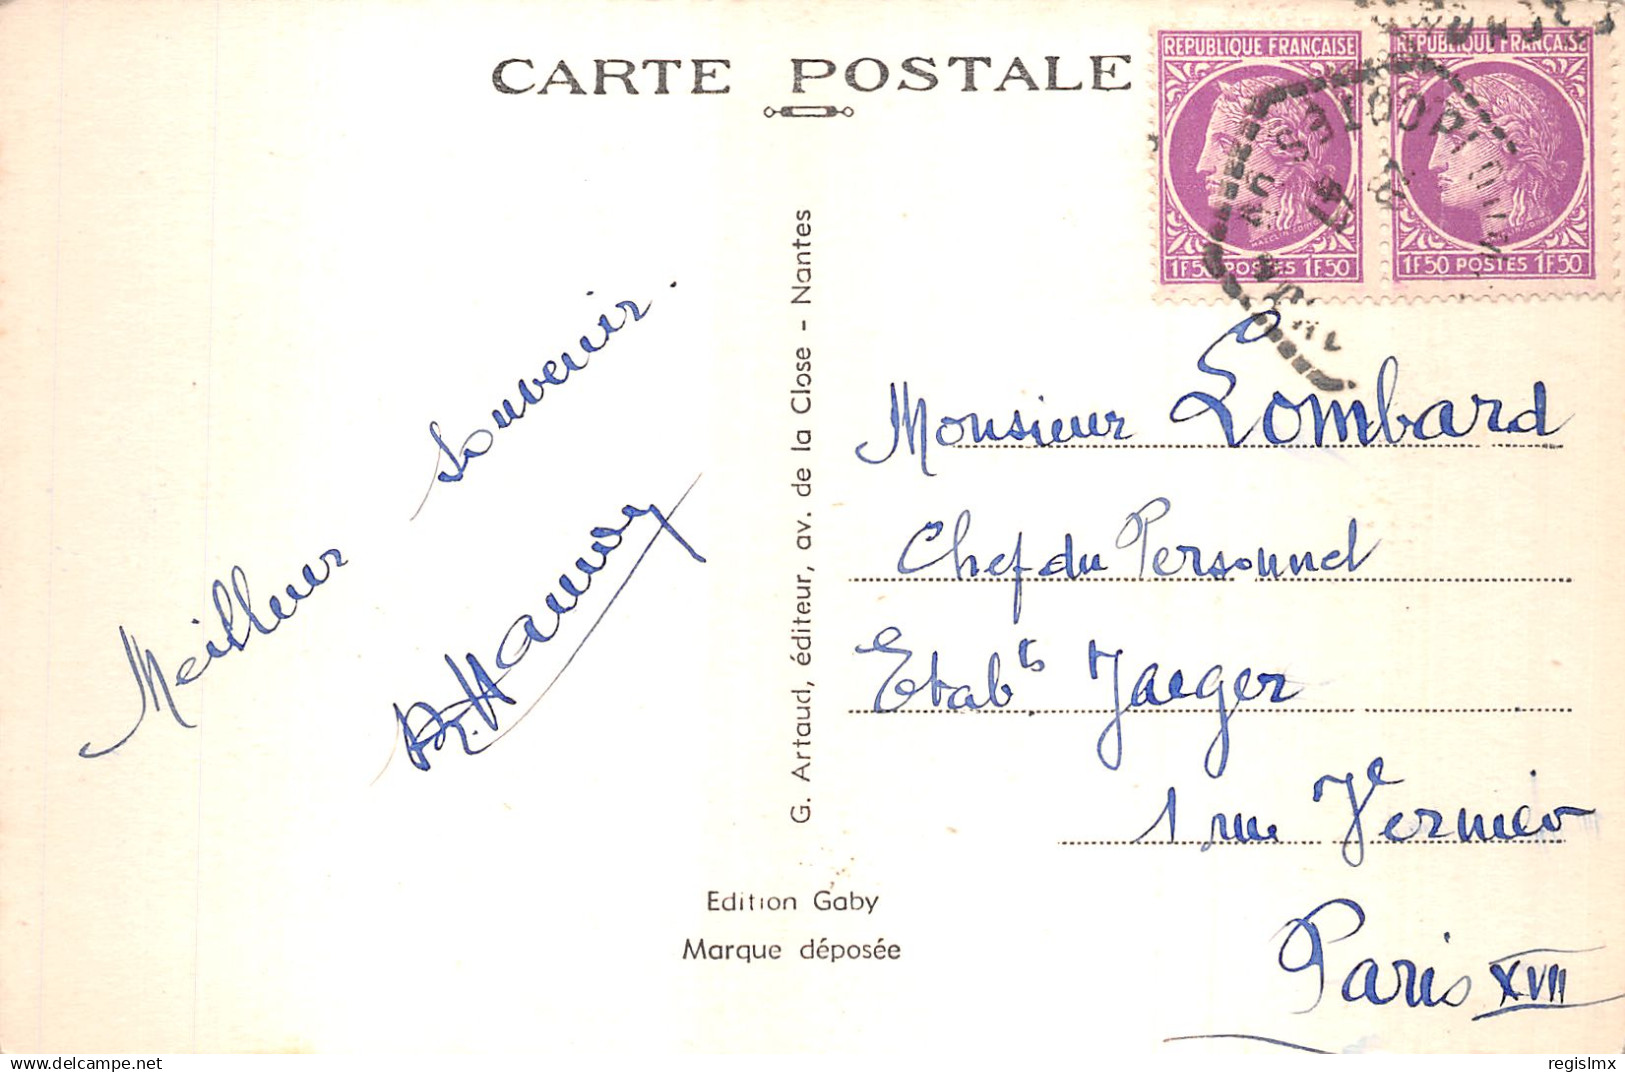 CARTE POSTALE
REPUBLIQUE FRANÇAISE
1F50 POSTES 1F50
REPUBLIQUE FRANÇAISE
1F50 POSTES 1F50
Meilleur souvenir.
G. Artaud, éditeur, av. de la Close - Nantes
Monsieur Lombard
Chef du Personnel
Etabts Jaeger
1 rue Vernier
Paris XVII
Edition Gaby
Marque déposée
delcampe.net
regislmx